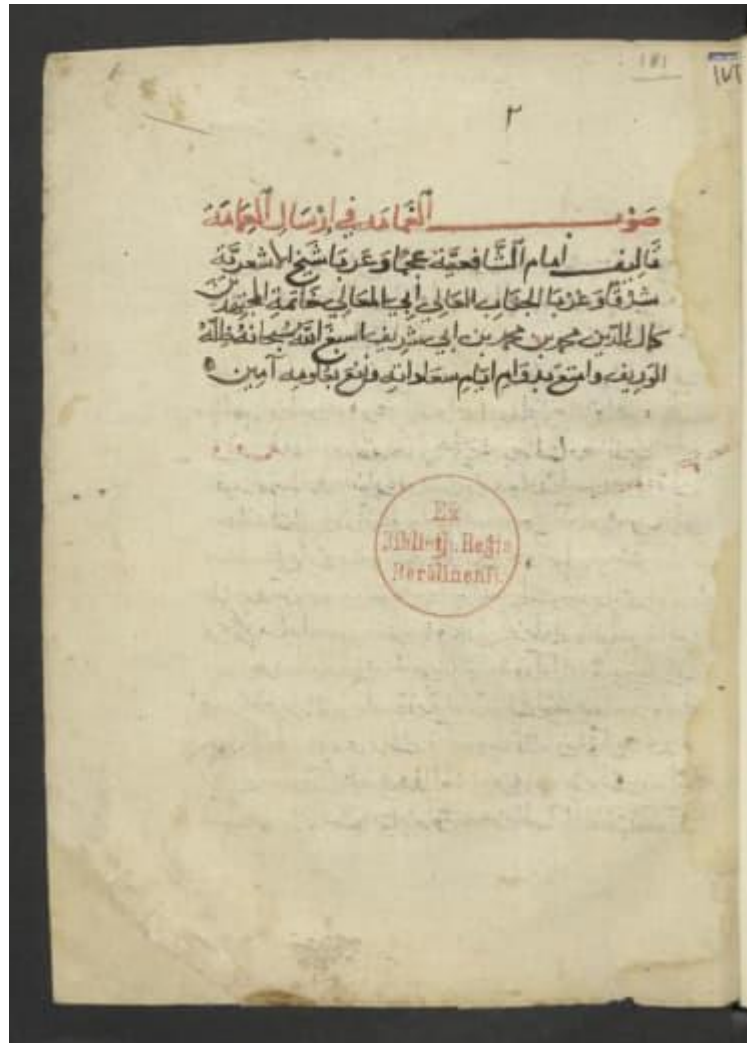 181
171
٢
صوب الغمامة في إرسال العمامة
تاليف امام الشافعية عجمًا وعربا شيخ الاشعرية
شرقًا وغربا الجناب العالي ابي المعالي خاتمة المجتهدين
كمال الدين محمد بن محمد بن ابي شريف اسبغ الله سبحانه ظله
الوريف وامتع بدوام ايام سعاداته ونفع بعلومه آمين
Ex
Biblioth. Regia
Berolinensi.